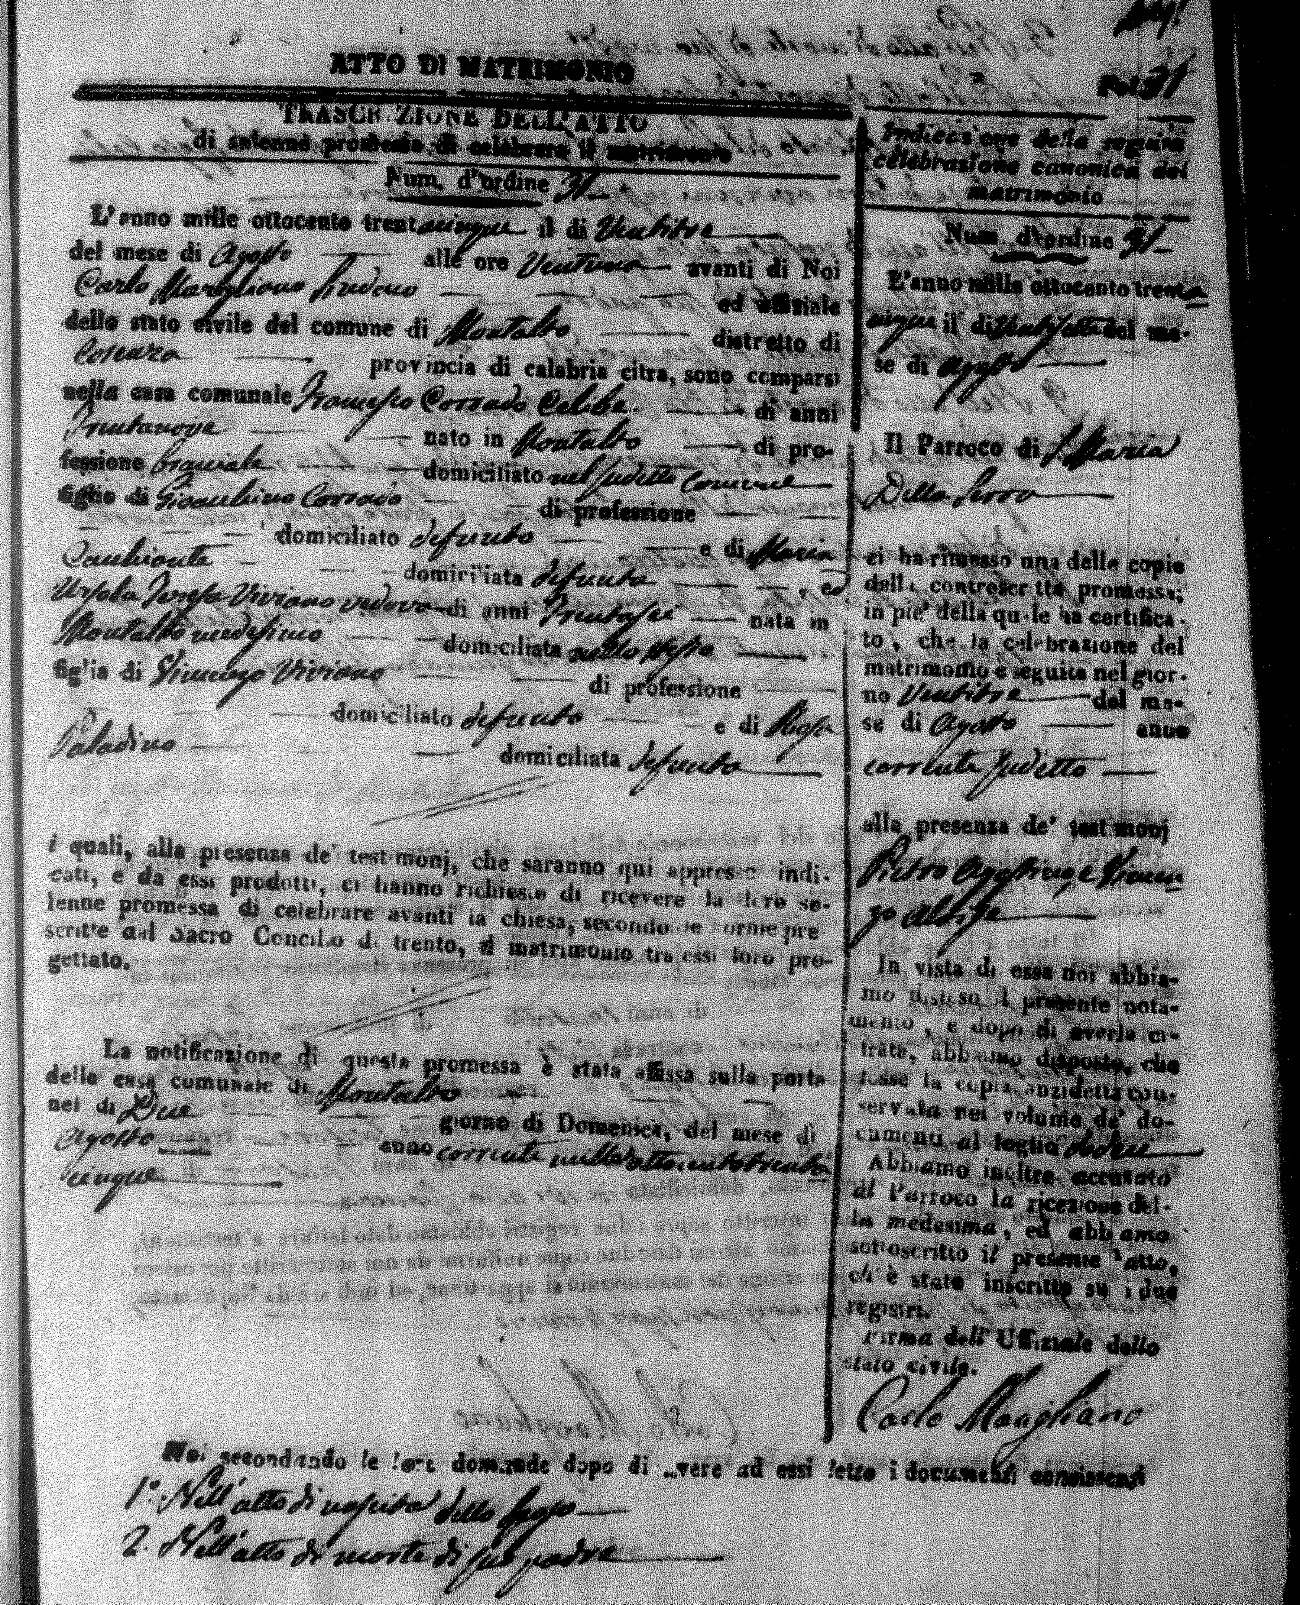 ATTO DI MATRIMONIO
TRASCRIZIONE DELL'ATTO
di solenne promessa di celebrare il matrimonio
Num. d'ordine 31
L'anno mille ottocento trentacinque il di Ventitre
del mese di Agosto alle ore avanti di Noi
Carlo Sindaco ed uffiziale
dello stato civile del comune di Montalto distretto di
Cosenza provincia di calabria citra, sono comparsi
nella casa comunale Francesco Corrado Celibe di anni
Trentanove nato in Montalto di pro-
fessione bracciale domiciliato nel sudetto Comune
figlio di Corrado di professione
domiciliato defunto e di Maria
domiciliata defunta , ed
Ursola Teresa Viviano vedova di anni nata in
Montalto medesimo domiciliata nello stesso
figlia di Vincenzo Viviano di professione
domiciliato defunto e di Rosa
Paladino domiciliata defunta
i quali, alla presenza de' testimonj, che saranno qui appresso indi-
cati, e da essi prodotti, ci hanno richiesto di ricevere la loro so-
lenne promessa di celebrare avanti la chiesa, secondo le forme pre
scritte dal Sacro Concilio di trento, il matrimonio tra essi loro pro-
gettato.
La notificazione di questa promessa è stata affissa sulla porta
della casa comunale di Montalto
nel di Due giorno di Domenica, del mese di
Agosto anno corrente mille ottocento trenta
cinque
Noi secondando le loro domande dopo di avere ad essi letto i documenti consistenti
1° Nell'atto di nascita dello sposo
2. Nell'atto di morte di suo padre
31
Indicazione della seguita
celebrazione canonica del
matrimonio
Num. d'ordine 31
L'anno mille ottocento trenta
cinque il di del me-
se di Agosto
Il Parroco di S. Maria
Della Serra
ci ha rimesso una delle copie
della controscritta promessa;
in piè della quale ha certifica-
to, che la celebrazione del
matrimonio è seguita nel gior-
no Ventitre del me-
se di Agosto anno
corrente sudetto
alla presenza de' testimonj
Pietro e Vincen
zo
In vista di essa noi abbia-
mo disteso il presente nota-
mento, e dopo di averla ci-
frata, abbiamo disposto, che
fosse la copia anzidetta con-
servata nel volume de' do-
cumenti al foglio
Abbiamo inoltre accusato
al Parroco la ricezione del-
la medesima, ed abbiamo
sottoscritto il presente atto,
ch'è stato inscritto su i due
registri.
Firma dell'Uffiziale dello
stato civile.
Carlo